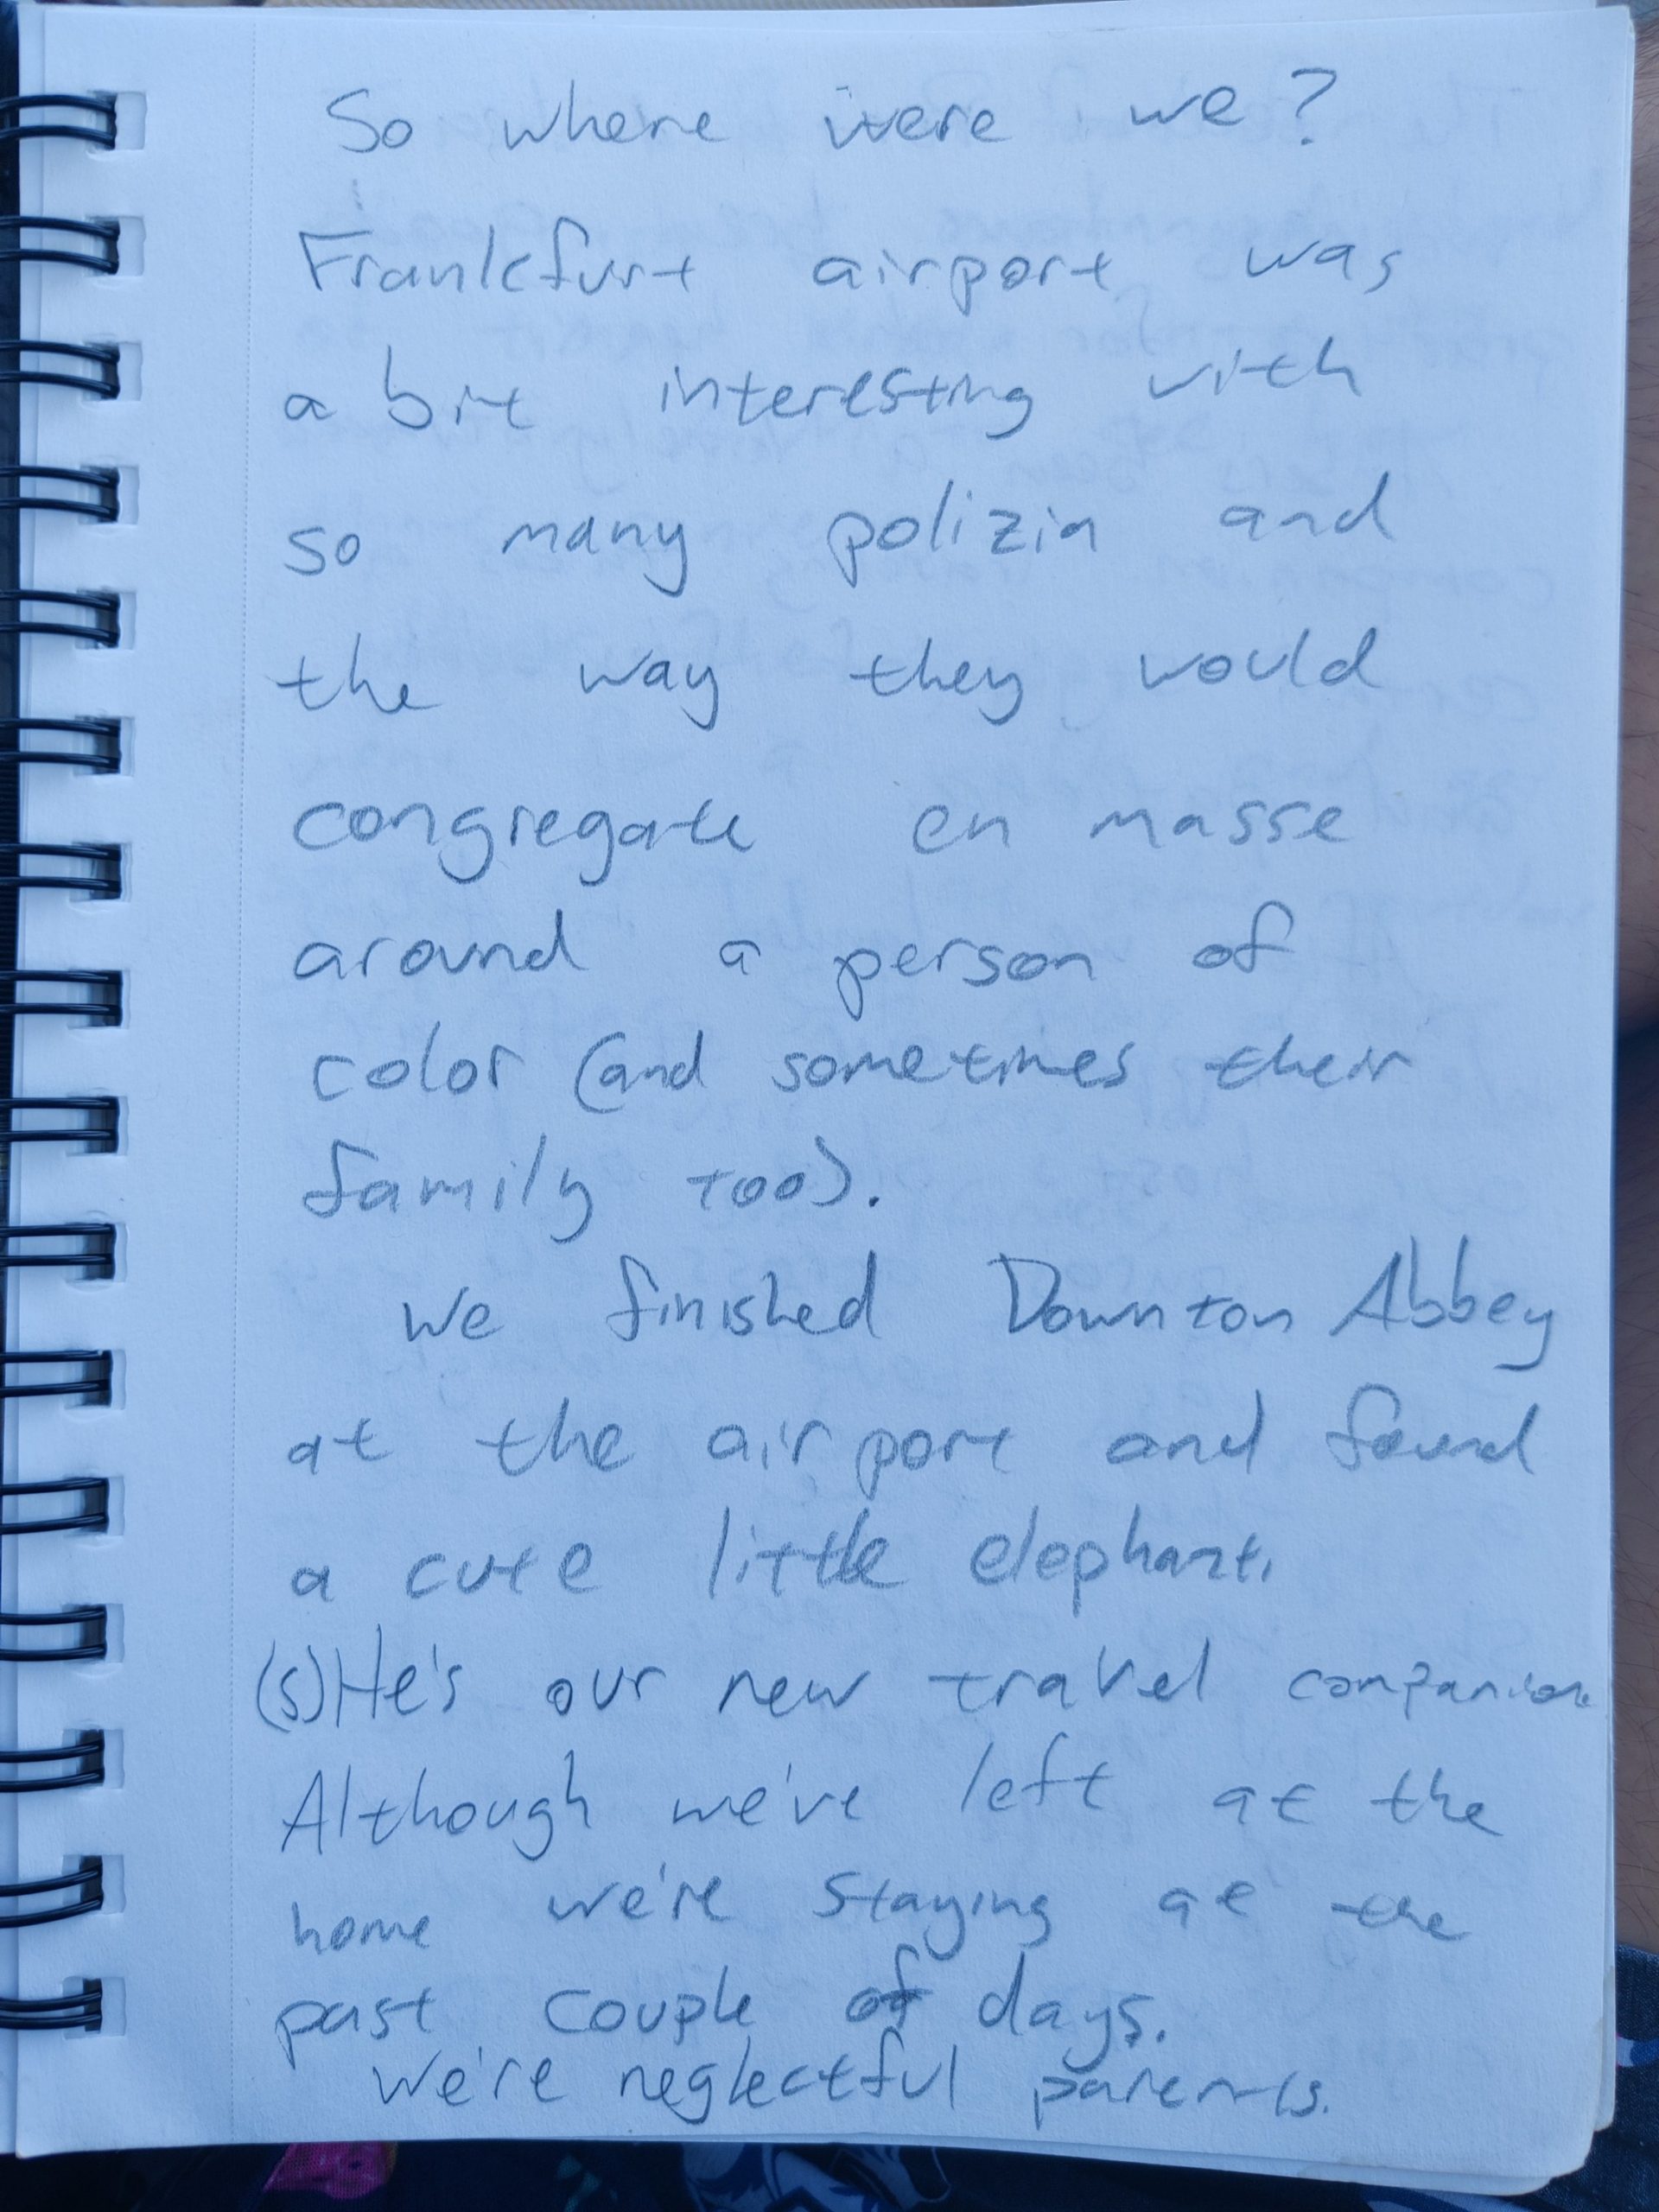 So where were we?
Frankfurt airport was
a bit interesting with
so many polizia and
the way they would
congregate en masse
around a person of
color (and sometimes their
family too).
We finished Downton Abbey
at the airport and found
a cute little elephant.
(S)He's our new travel companion
Although we've left at the
home we're staying at the
past couple of days.
We're neglectful parents.